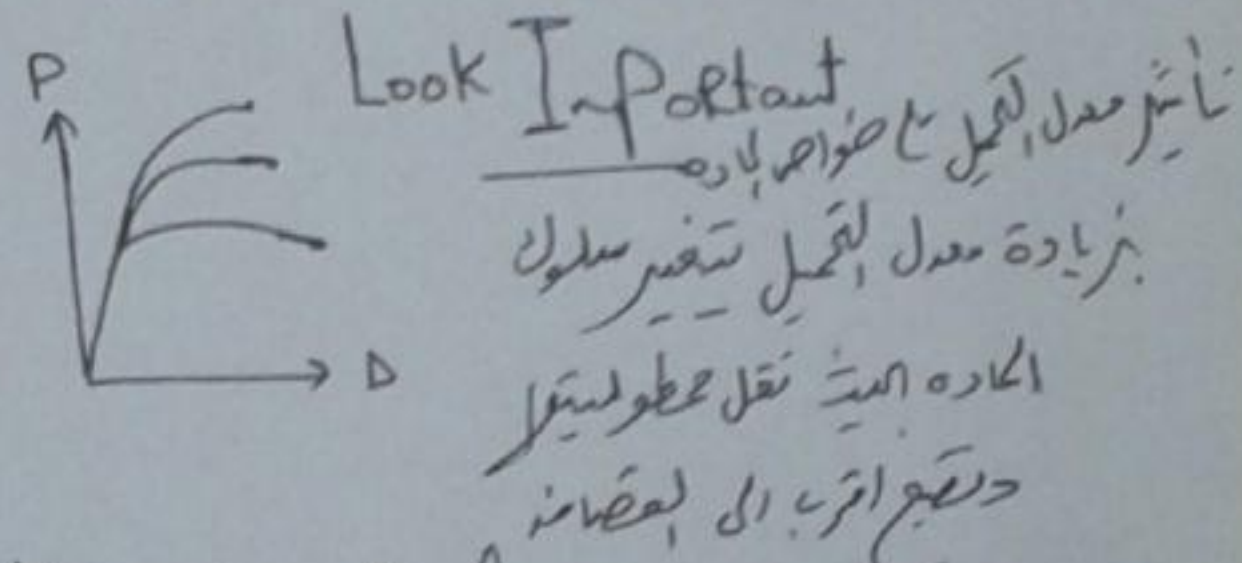 P
Look Important
تأثير معدل التحميل على خواص المادة
بزيادة معدل التحميل تتغير سلوك
المادة بحيث تقل ممطوليتها
وتصبح اقرب الى القصافة
D